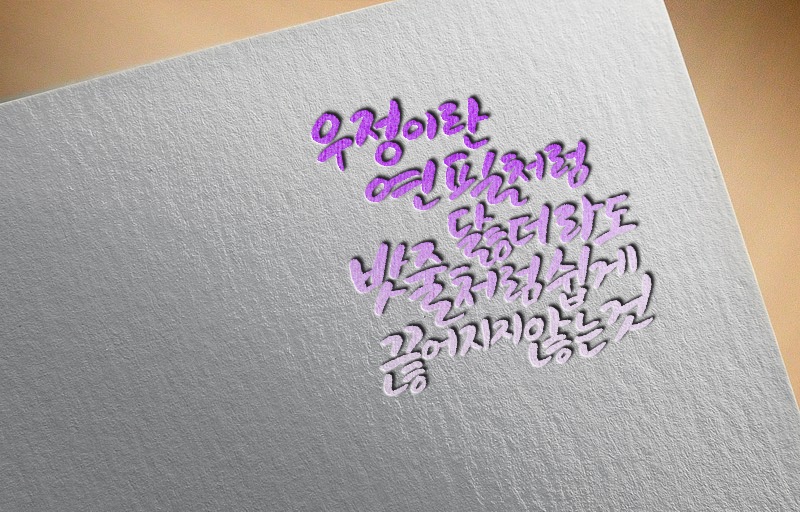 우정이란
연필처럼
닳더라도
밧줄처럼 쉽게
끊어지지 않는 것